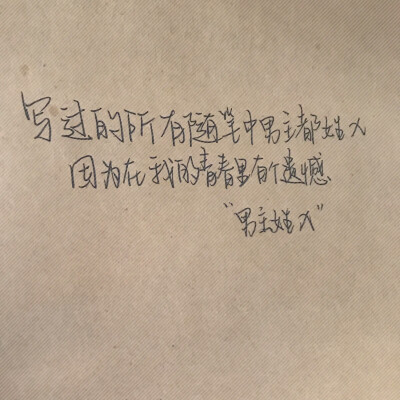 写过的所有随笔中男主都姓x
因为在我的青春里有个遗憾
“男主姓x”